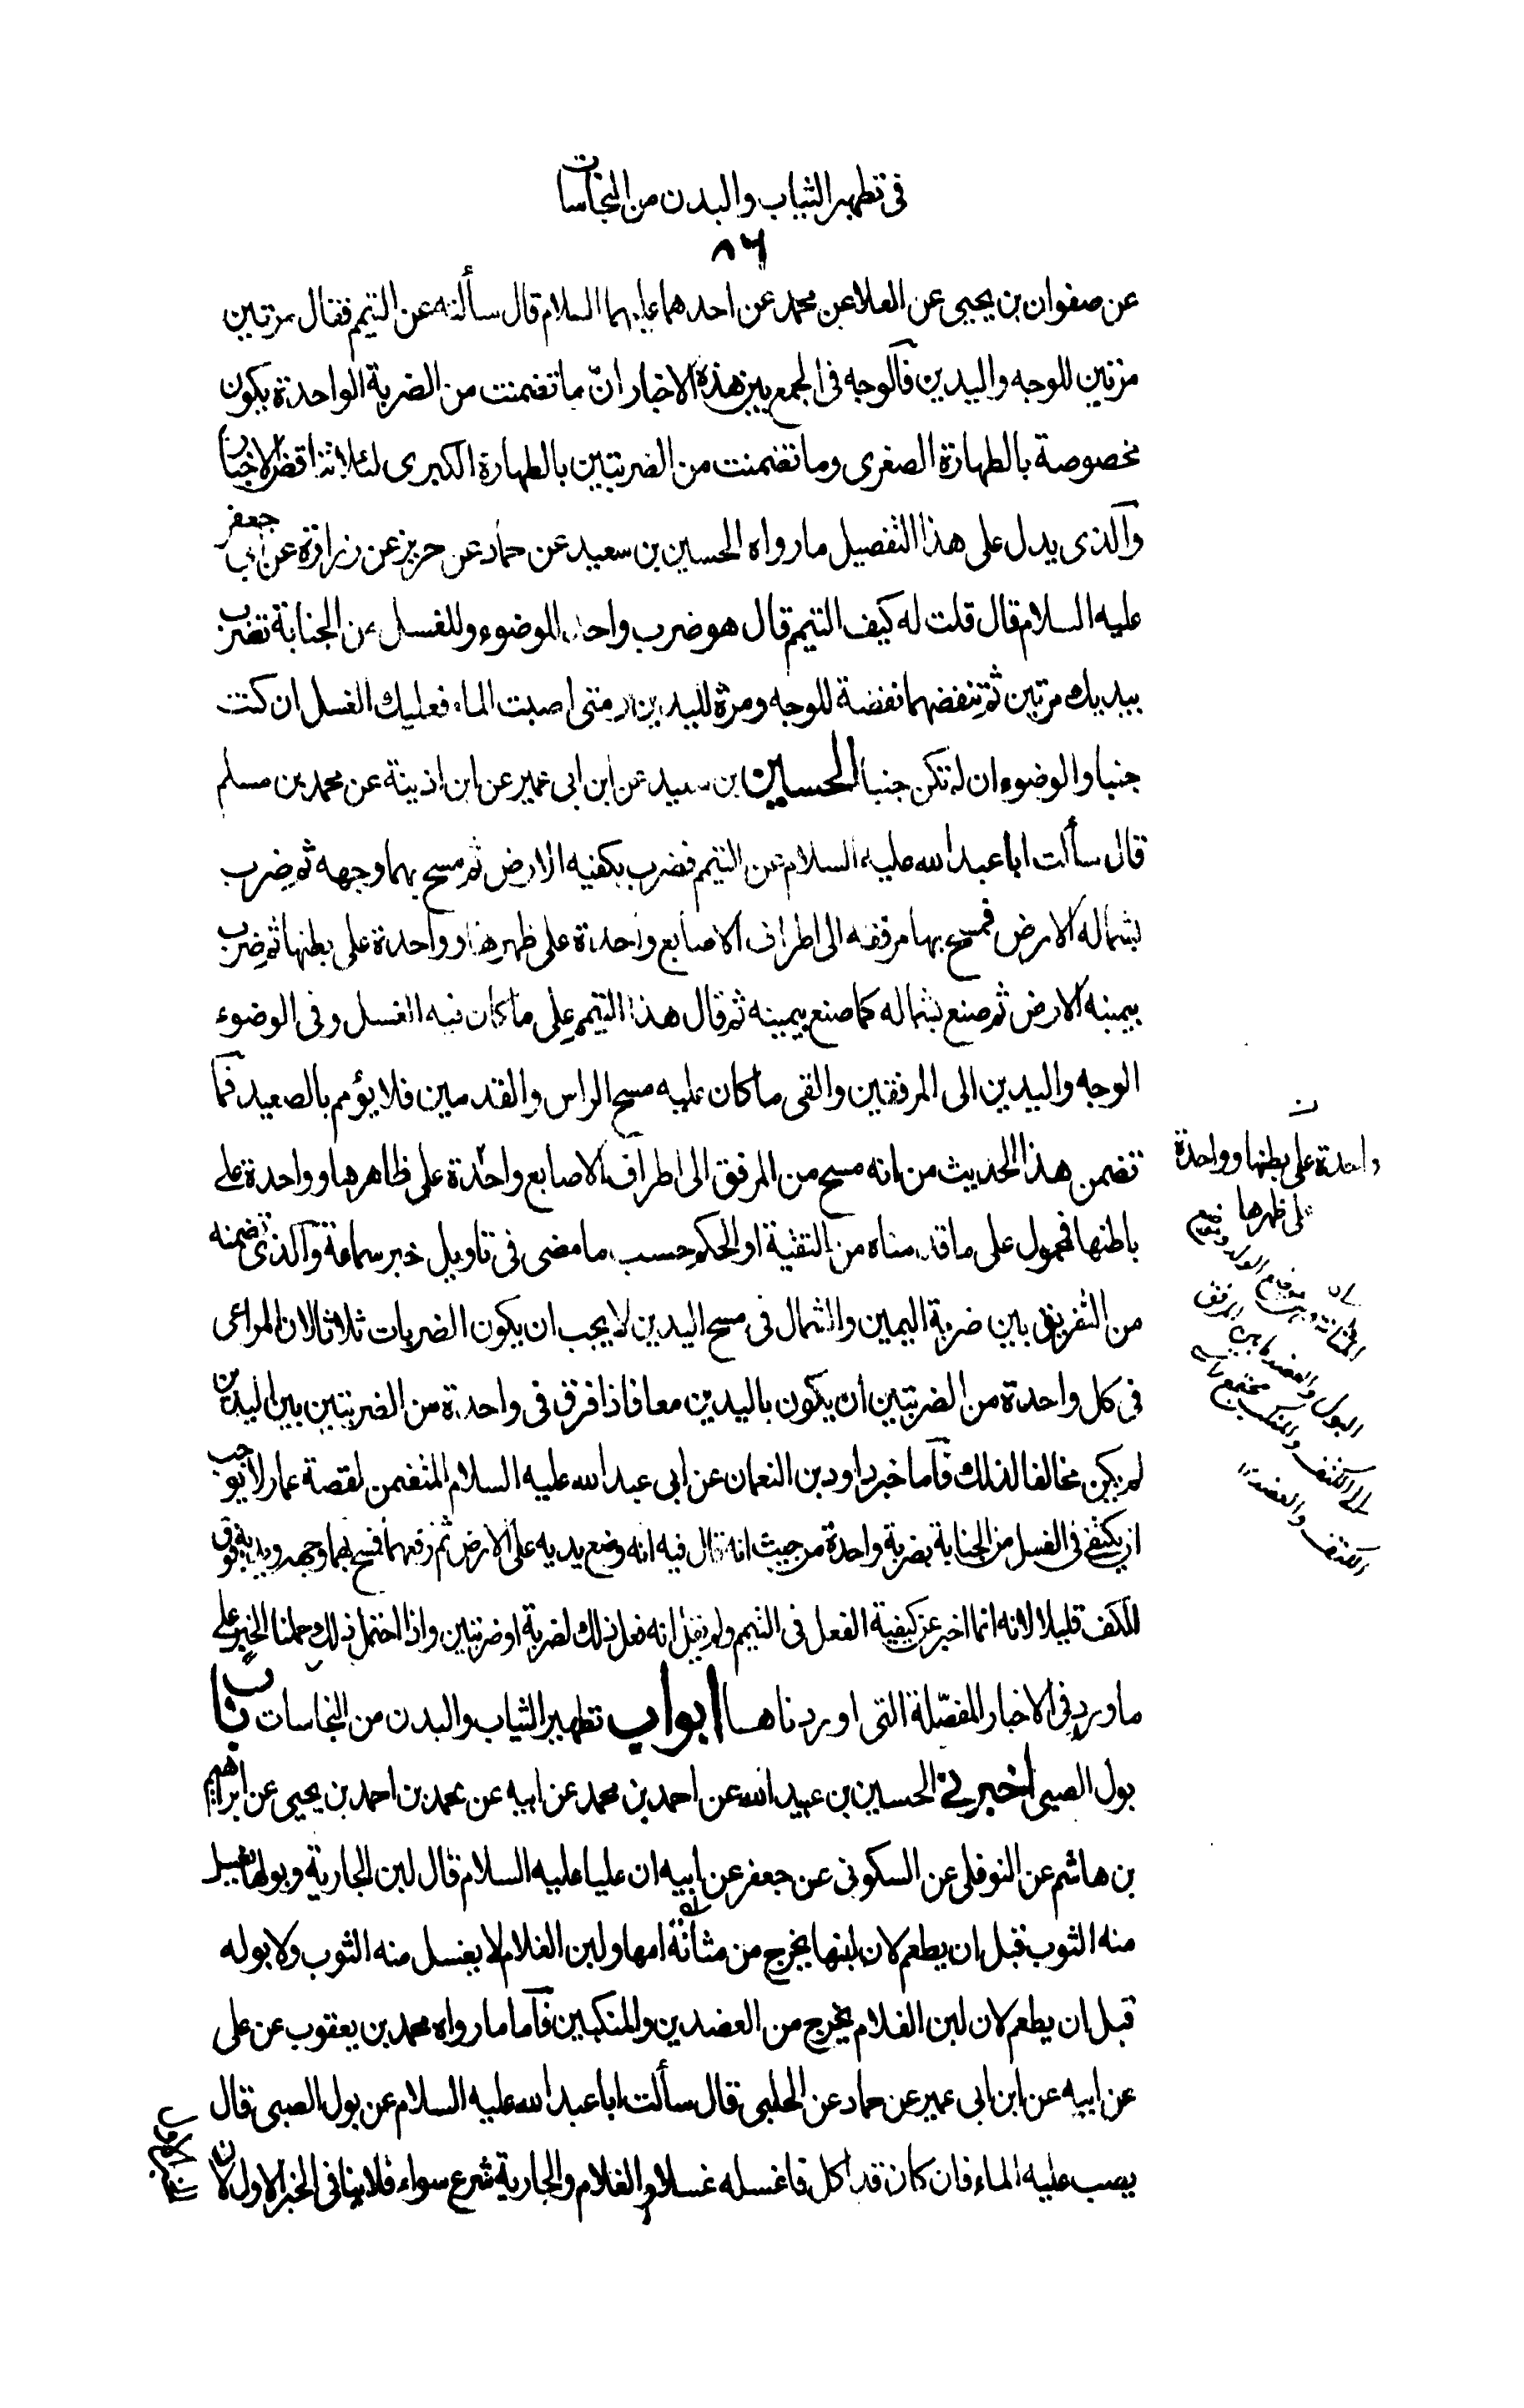 في تطهير الثياب والبدن من النجاسات
٨٦
عن صفوان بن يحيى عن العلا عن محمد عن احدهما عليهما السلام قال سألته عن التيمم فقال مرتين
مرتين للوجه واليدين فالوجه في الجمع بين هذه الاخبار انّ ما تضمنت من الضربة الواحدة يكون
مخصوصة بالطهارة الصغرى وما تضمنت من الضربتين بالطهارة الكبرى لئلا تتناقض الاخبار
والذى يدل على هذا التفصيل ما رواه الحسين بن سعيد عن حماد عن حريز عن زرارة عن ابى جعفر
عليه السلام قال قلت له كيف التيمم قال هو ضرب واحد للوضوء وللغسل من الجنابة تضرب
بيديك مرتين ثم تنفضهما نفضة للوجه ومرة لليدين ومتى اصبت الماء فعليك الغسل ان كنت
جنبا والوضوء ان لم تكن جنبا الحسين بن سعيد عن ابن ابى عمير عن ابن اذينة عن محمد بن مسلم
قال سألت ابا عبد الله عليه السلام عن التيمم فضرب بكفيه الارض ثم مسح بهما وجهه ثم ضرب
بشماله الارض فمسح بها مرفقه الى اطراف الاصابع واحدة على ظهرها وواحدة على بطنها ثم ضرب
بيمينه الارض ثم صنع بشماله كما صنع بيمينه ثم قال هذا التيمم على ما كان فيه الغسل وفى الوضوء
الوجه واليدين الى المرفقين والقى ما كان عليه مسح الراس والقدمين فلا يؤمم بالصعيد فما
تضمن هذا الحديث من انه مسح من المرفق الى اطراف الاصابع واحدة على ظاهرها وواحدة على
باطنها فمحمول على ما قدمناه من التقية او الحكم حسب ما مضى فى تاويل خبر سماعة والذى تضمنه
من التفريق بين ضربة اليمين والشمال فى مسح اليدين لا يجب ان يكون الضربات ثلاثا لان المراعى
فى كل واحدة من الضربتين ان يكون باليدين معا فاذا فرق فى واحدة من الضربتين بين اليدين
لم يكن مخالفا لذلك فاما خبر داود بن النعمان عن ابى عبد الله عليه السلام المتضمن لقصة عمار لا يوجب
ان يكتفى فى الغسل من الجنابة بضربة واحدة من حيث انه قال فيه انه وضع يديه على الارض ثم رفعهما فمسح بهما وجهه ويديه فوق
الكف قليلا لانه انما اخبر عن كيفية الفعل فى التيمم ولم يقل انه فعل ذلك لضربة او ضربتين واذا احتمل ذلك حملنا الخبر على
ما ورد فى الاخبار المفصّلة التى اوردناها ابواب تطهير الثياب والبدن من النجاسات باب
بول الصبى اخبرنى الحسين بن عبيد الله عن احمد بن محمد عن ابيه عن محمد بن احمد بن يحيى عن ابراهيم
بن هاشم عن النوفلى عن السكونى عن جعفر عن ابيه ان عليا عليه السلام قال لبن الجارية وبولها تغسل
منه الثوب قبل ان يطعم لان لبنها يخرج من مثانة امها ولبن الغلام لا يغسل منه الثوب ولا بوله
قبل ان يطعم لان لبن الغلام يخرج من العضدين والمنكبين فاما ما رواه محمد بن يعقوب عن على
عن ابيه عن ابن ابى عمير عن حماد عن الحلبى قال سألت ابا عبد الله عليه السلام عن بول الصبى قال
يصب عليه الماء فان كان قد اكل فاغسله غسلا والغلام والجارية شرع سواء فلا ينافى الخبر الاول لان
واحدة على بطنها وواحدة
على ظهرها